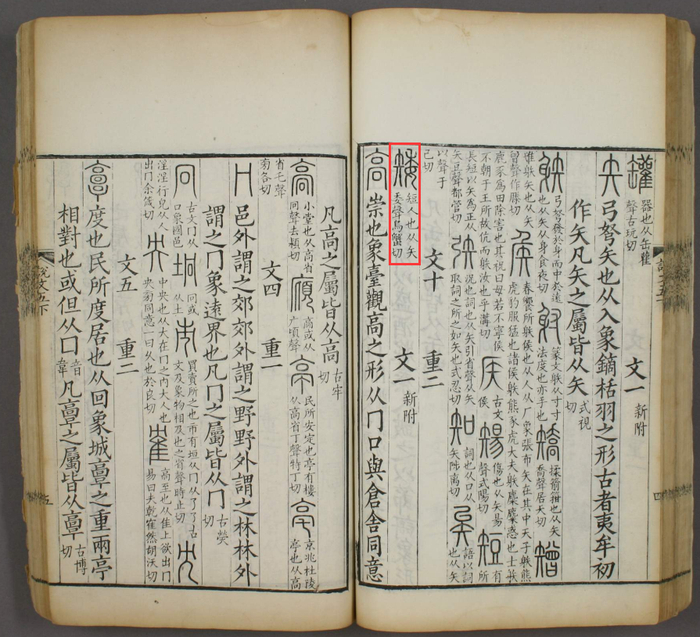 罐 器也从缶雚聲古玩切 文一 新附
矢 弓弩矢也从入象鏑栝羽之形古者夷牟初
作矢凡矢之屬皆从矢 式視切
䠶 弓弩發於身而中於遠也从矢从身食夜切 射 篆文䠶从寸寸法度也亦手也 矯 揉箭箝也从矢喬聲居夭切 矰
隿䠶矢也从矢曾聲作滕切 矦 春饗所䠶矦也从人从厂象張布矢在其下天子䠶熊虎豹服猛也諸侯䠶熊豕虎大夫䠶麋麋惑也士䠶
鹿豕爲田除害也其祝曰毋若不寧矦不朝于王所故伉而䠶汝也乎溝切 古文矦 𥏻 傷也从矢昜聲式陽切 短 有所
長短以矢爲正从矢豆聲都管切 矤 況也詞也从矢引省聲从矢取詞之所之如矢也式忍切 知 詞也从口从矢陟离切 矣 語以詞也从矢
以聲于已切 文十 重二
矮 短人也从矢委聲烏蟹切 文一 新附
高 崇也象臺觀高之形从冂口與倉舍同意
凡高之屬皆从高 古牢切
小堂也从高省冋聲去潁切 廎 高或从广頃聲 亭 民所安定也亭有樓从高省丁聲特丁切 亳 京兆杜陵亭也从高
省乇聲旁各切 文四 重一
冂 邑外謂之郊郊外謂之野野外謂之林林外
謂之冂象遠界也凡冂之屬皆从冂 古熒切
冋 古文冂从口象國邑 坰 冋或从土 市 買賣所之也市有垣从冂从乁乁古文及象物相及也之省聲時止切 冘
淫淫行皃从人出冂余箴切 央 中央也从大在冂之内大人也央㫄同意一曰久也於良切 隺 高至也从隹上欲出冂易曰夫乾隺然胡沃切
文五 重二
𩫖 度也民所度居也从回象城𩫖之重兩亭
相對也或但从口 音韋 凡𩫖之屬皆从𩫖 古博切
說文五下